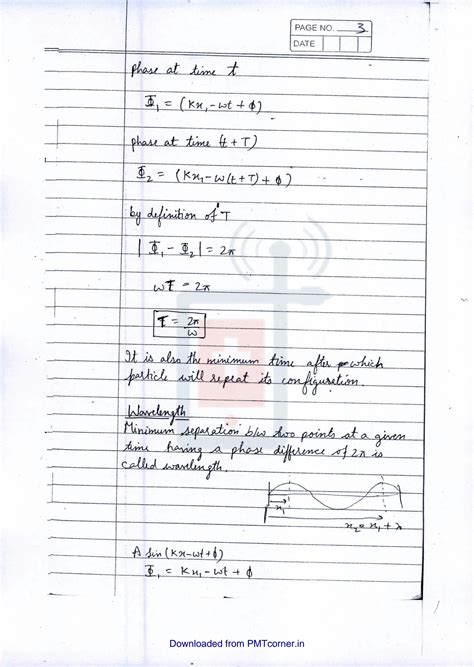 PAGE NO. 3
DATE
phase at time t
Φ₁ = (Kx₁-ωt+ϕ)
phase at time (t+T)
Φ₂ = (Kx₁-ω(t+T)+ϕ)
by definition of T
|Φ₁-Φ₂| = 2π
ωT = 2π
T = 2π/ω
It is also the minimum time after which
particle will repeat its configuration.
Wavelength
Minimum separation b/w two points at a given
time having a phase difference of 2π is
called wavelength.
x₁
x₂=x₁+λ
A sin(Kx-ωt+ϕ)
Φ₁ = Kx₁-ωt+ϕ
Downloaded from PMTcorner.in